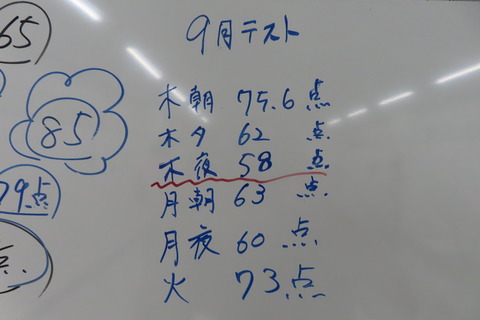 9月テスト
木朝 75.6 点
木夕 62 点
木夜 58 点
月朝 63 点
月夜 60 点
火 73点
65
85
79点
点